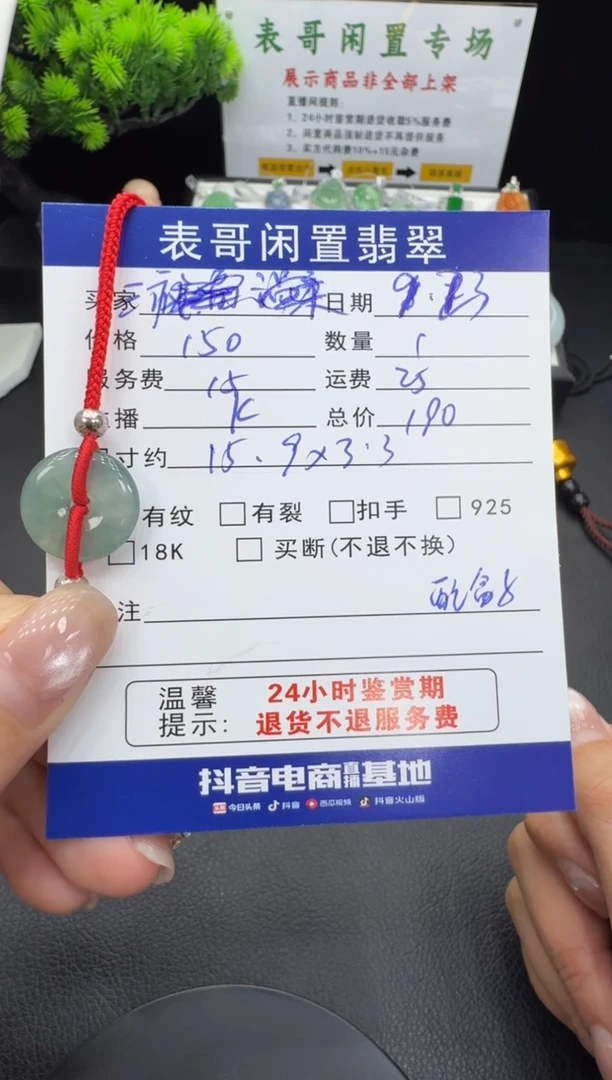 表哥闲置专场
展示商品非全部上架
直播间规则:
1、24小时鉴赏期退货收取5%服务费
2、闲置商品强制退货不再提供服务
3、买方代购费10%+15元杂费
表哥闲置翡翠
买家 日期
价格 150 数量 1
服务费 15 运费 25
播 K 总价 190
寸约 15.9x3.3
有纹 有裂 扣手 925
18K 买断(不退不换)
注 配盒
温馨提示: 24小时鉴赏期
退货不退服务费
抖音电商直播基地
今日头条 抖音 西瓜视频 抖音火山版